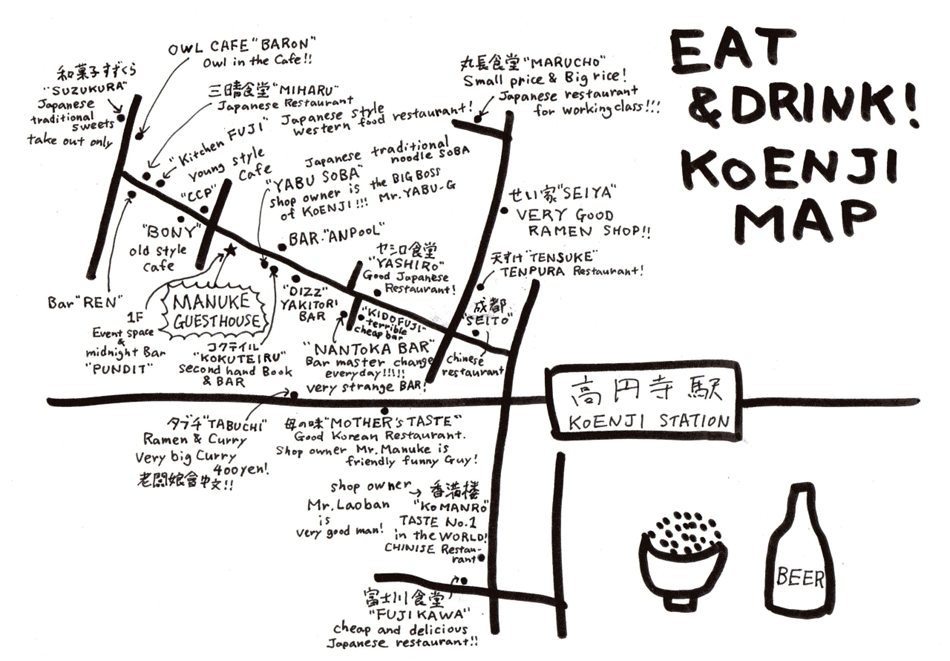 EAT
& DRINK!
KOENJI
MAP
OWL CAFE "BARON"
Owl in the Cafe!!
和菓子すずくら
"SUZUKURA"
Japanese
traditional
sweets
take out only
三晴食堂 "MIHARU"
Japanese Restaurant
"Kitchen FUJI" Japanese style
western food restaurant!
丸長食堂 "MARUCHO"
Small price & Big rice!
Japanese restaurant
for working class!!!
young style
Cafe
"CCP"
Japanese traditional
noodle SOBA
"YABU SOBA"
shop owner is the BIG BOSS
of KOENJI!!! Mr. YABU-G
せい家 "SEIYA"
VERY GOOD
RAMEN SHOP!!
"BONY"
old style
Cafe
BAR. "ANPOOL"
ヤシロ食堂
"YASHIRO"
Good Japanese
Restaurant!
天すけ "TENSUKE"
TENPURA Restaurant!
Bar "REN"
MANUKE
GUESTHOUSE
1F
Event space
&
midnight Bar
"PUNDIT"
"DIZZ"
YAKITORI
BAR
"KIDOFUJI"
terrible
cheap bar
成都
"SEITO"
chinese
restaurant
コクテイル
"KOKUTEIRU"
second hand Book
& BAR
"NANTOKA BAR"
Bar master change
everyday!!!!!
very strange BAR!
高円寺駅
KOENJI STATION
タブチ "TABUCHI"
Ramen & Curry
Very big Curry
400yen!
老闆娘會中文!!
母の味 "MOTHER's TASTE"
Good Korean Restaurant.
Shop owner Mr. Manuke is
friendly funny Guy!
shop owner
Mr. Laoban
is
very good man!
香満楼
"KOMANRO"
TASTE No.1
in the WORLD!
CHINISE Restau-
rant
富士川食堂
"FUJIKAWA"
cheap and delicious
Japanese restaurant!!
BEER